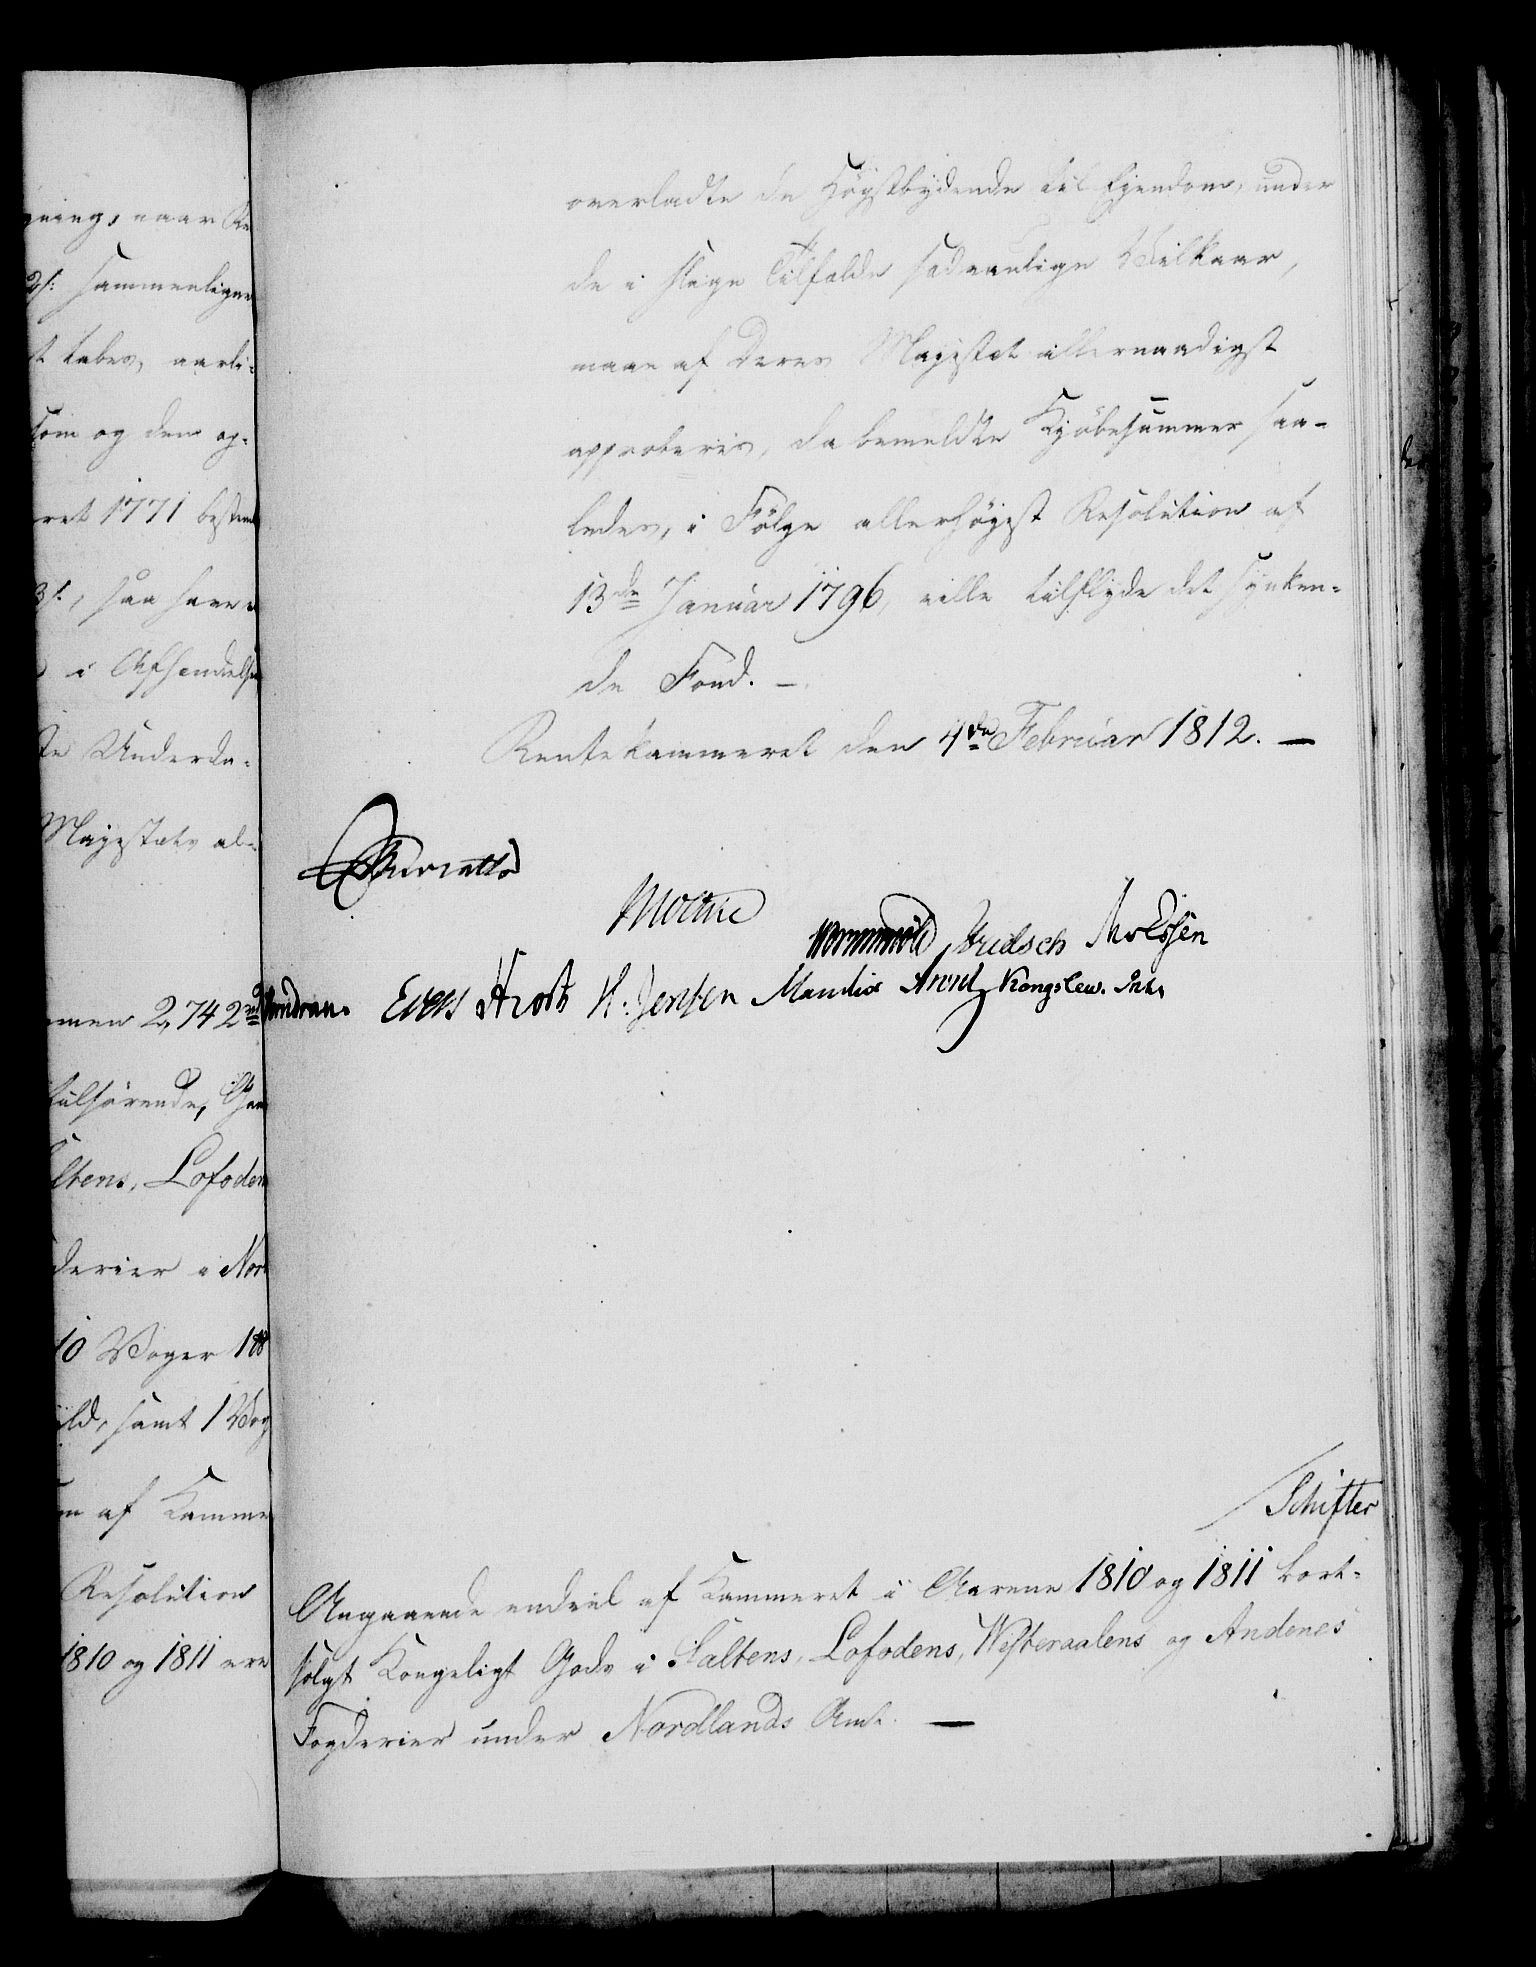 gning, naar Re
2/: sammenligne
st tabes, aarli-
som og den op-
ret 1771 bestem
3/:, saa have
i Afhændelse
te Underda-
Majestæts al-
men 2,742
tilhørende,
ltens, Lofoden
derier i Nor
10 Woger 1
ild, samt 1 Wog
en af Kamme
Resolution
1810 og 1811 ere
overladte de Høystbydende til Ejendom, under
de i slige Tilfælde sædvanlige Vilkaar,
maae af Deres Majestæt allernaadigst
approberes, da bemeldte Kjøbesummer saa-
ledes, i Følge allerhøyest Resolution af
13de Januar 1796, ville tilflyde det synken-
de Fond. -
Rentekammeret den 4de Februar 1812. -
Moltke
Wormskiold
Evers H. Jensen Mandix Kongslew.
Schifter
Angaaende endeel af Kammeret i Aarene 1810 og 1811 bort-
solgt Kongeligt Gods i Saltens, Lofodens, Westeraalens og Andenes
Fogderier under Nordlands Amt. -